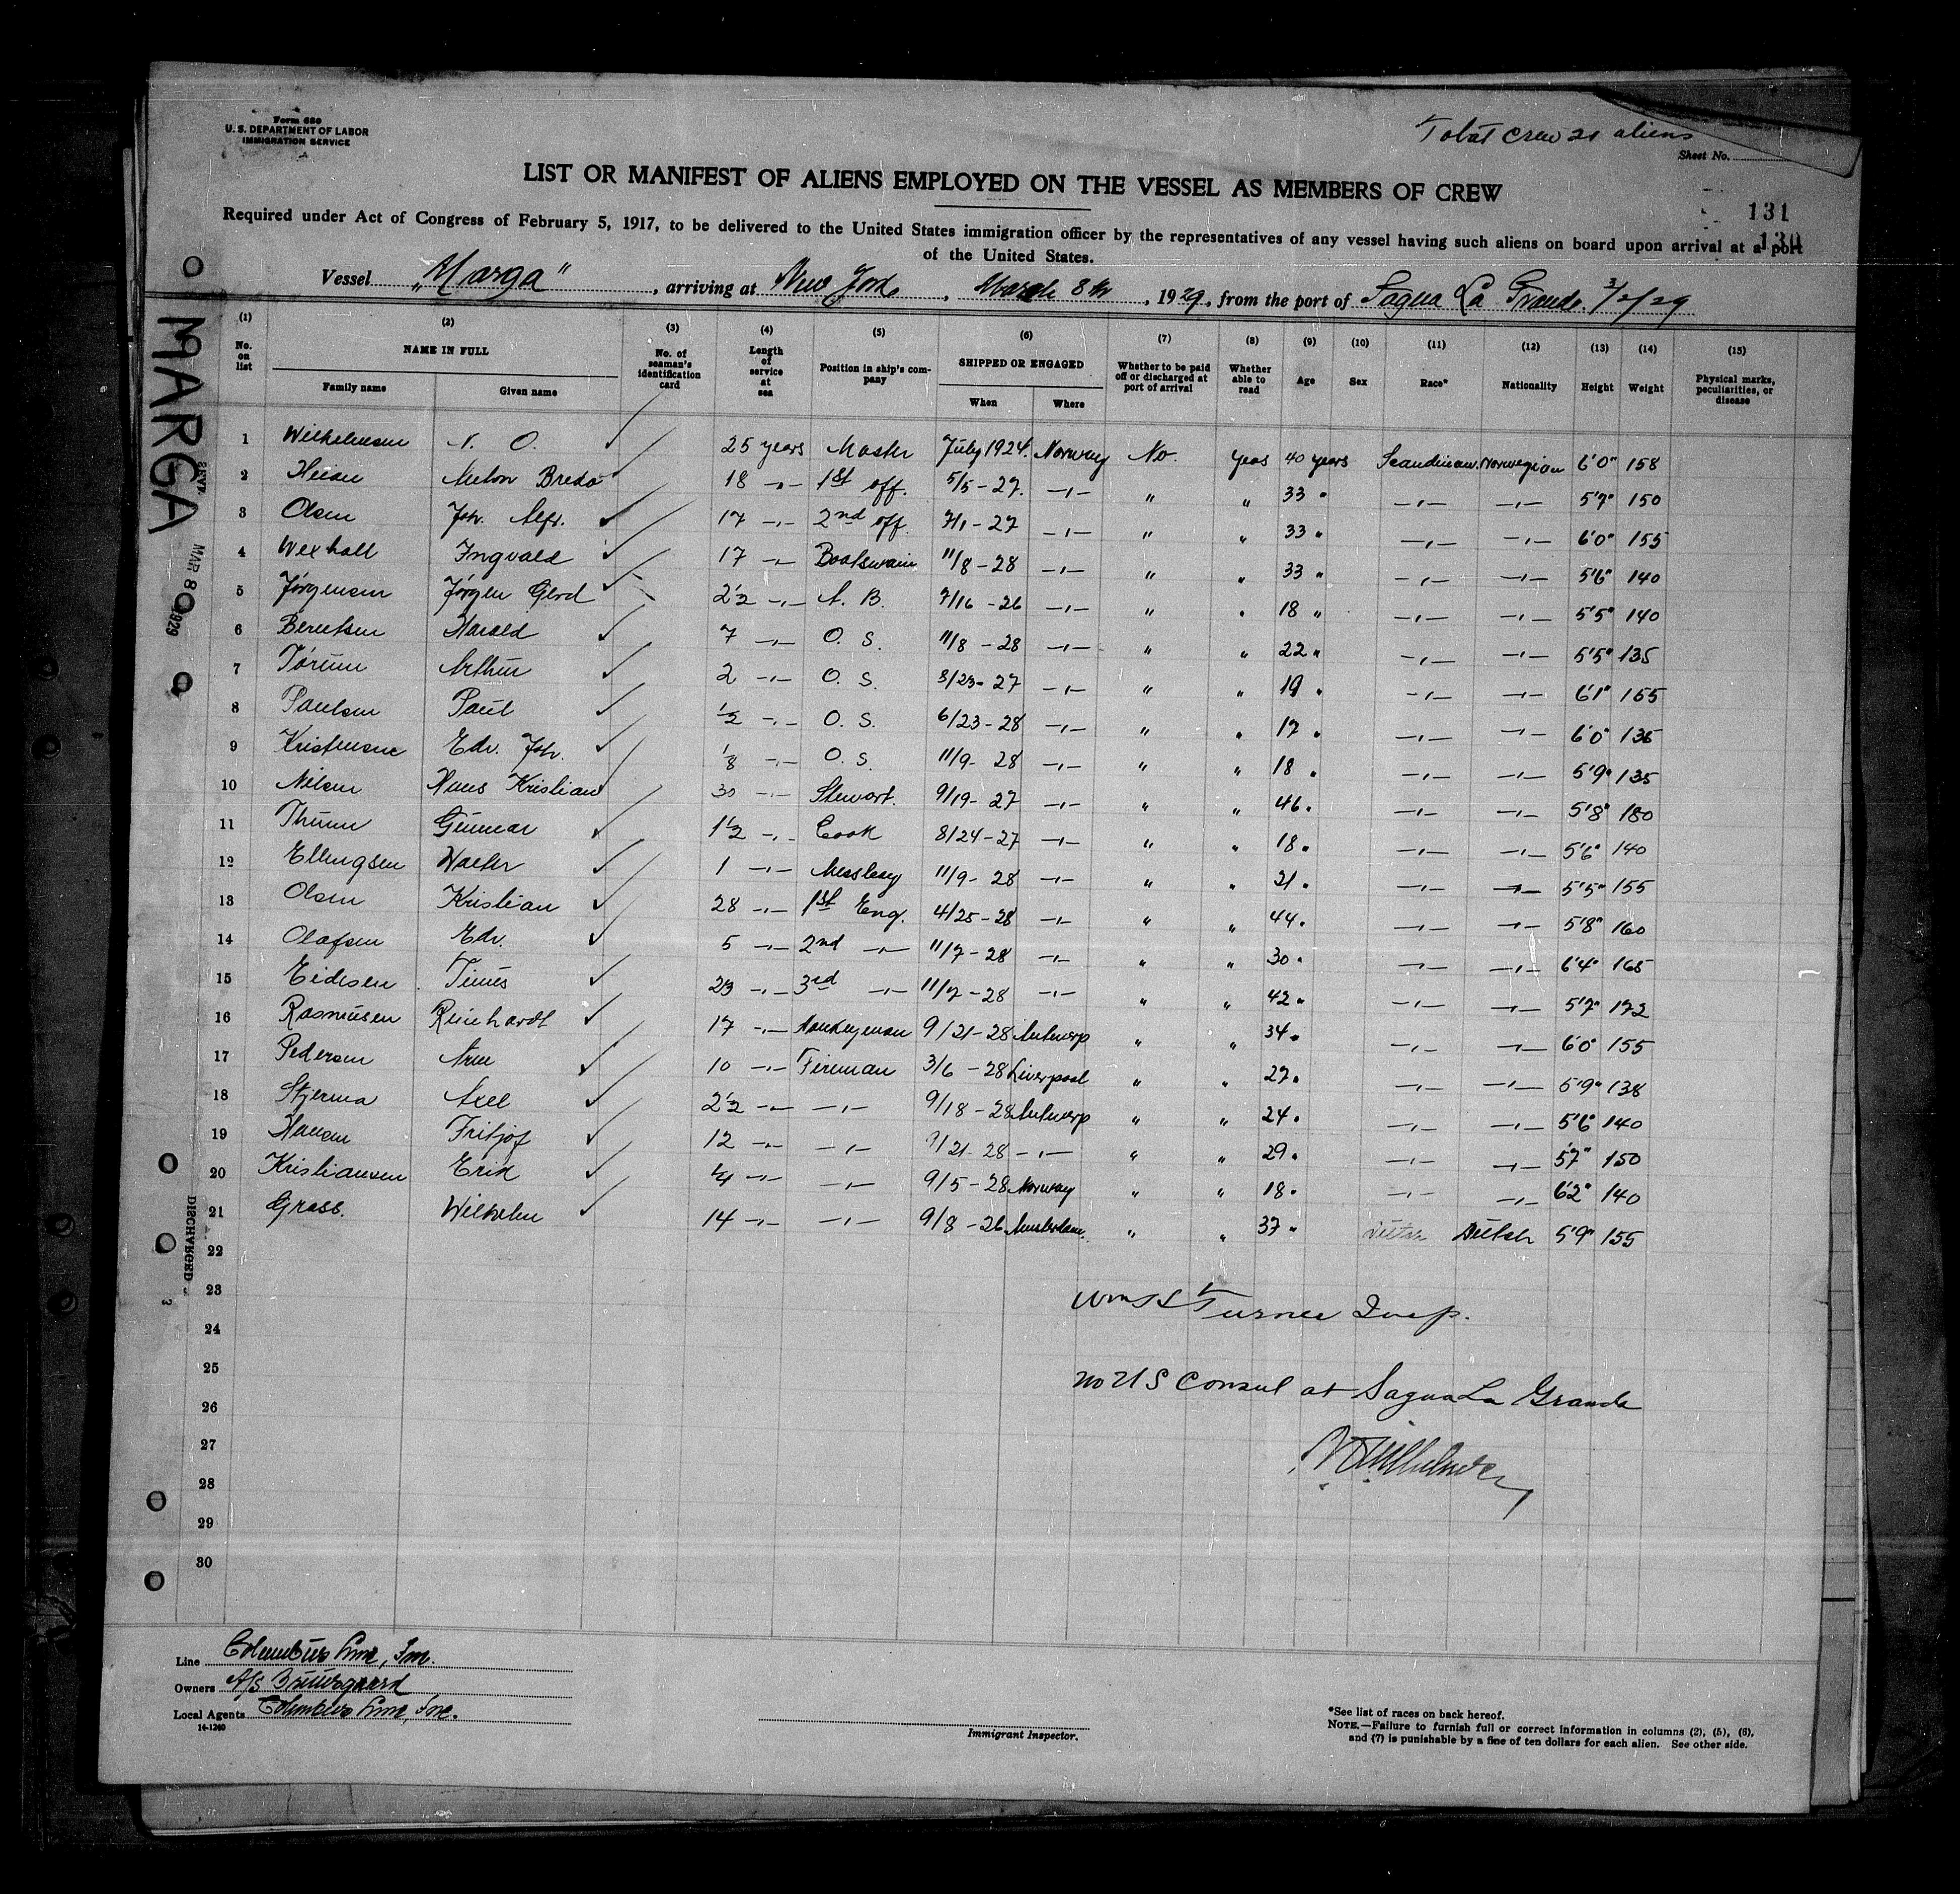 Form 680
U. S. DEPARTMENT OF LABOR
IMMIGRATION SERVICE
Total crew 21 aliens
Sheet No.
LIST OR MANIFEST OF ALIENS EMPLOYED ON THE VESSEL AS MEMBERS OF CREW
131
130
Required under Act of Congress of February 5, 1917, to be delivered to the United States immigration officer by the representatives of any vessel having such aliens on board upon arrival at a port
of the United States.
Vessel "Marga", arriving at New York, March 8th, 1929, from the port of Sagua La Grande. 3/2/29
MARGA
MAR 8 1929
DISCHARGED
(1) (2) (3) (4) (5) (6) (7) (8) (9) (10) (11) (12) (13) (14) (15)
No. on list NAME IN FULL Family name Given name No. of seaman's identification card Length of service at sea Position in ship's company SHIPPED OR ENGAGED When Where Whether to be paid off or discharged at port of arrival Whether able to read Age Sex Race* Nationality Height Weight Physical marks, peculiarities, or disease
1 Wilhelmsen N. O. 25 years Master July 1924. Norway No. yeas 40 years Scandinav. Norwegian 6'0" 158
2 Anton Bredo 18 -"- 1st off. 5/5-27. -"- " " 33 " -"- -"- 5'7" 150
3 Olsen Joh. Alfr. 17 -"- 2nd off. 7/1-27 -"- " " 33 " -"- -"- 6'0" 155
4 Wexhall Ingvald 17 -"- Boatswain 11/8-28 -"- " " 33 " -"- -"- 5'6" 140
5 Jørgensen Jørgen Gerd 2½ -"- A. B. 7/16-26 -"- " " 18 " -"- -"- 5'5" 140
6 Berntsen Harald 7 -"- O. S. 11/8-28 -"- " " 22 " -"- -"- 5'5" 135
7 Tórum Arthur 2 -"- O. S. 8/23-27 -"- " " 19 " -"- -"- 6'1"
8 Paulsen Paul ½ -"- O. S. 6/23-28 -"- " " 17 " -"- -"- 6'0" 135
9 Edv. Joh. ⅛ -"- O. S. 11/9-28 -"- " " 18 " -"- -"- 5'9" 135
10 Nilsen Hans Kristian 30 -"- Stewart. 9/19-27 -"- " " 46 " -"- -"- 5'8" 180
11 Thunn Gunnar 1½ -"- Cook 8/24-27 -"- " " 18 " -"- -"- 5'6" 140
12 Ellingsen Walter 1 -"- Messboy 11/9-28 -"- " " 21 " -"- -"- 5'5" 155
13 Olsen Kristian 28 -"- 1st Eng. 4/25-28 -"- " " 44 " -"- -"- 5'8" 160
14 Olafsen Edv. 5 -"- 2nd -"- 11/7-28 -"- " " 30 " -"- -"- 6'4" 165
15 Eidesen Tinus 29 -"- 3rd -"- 11/7-28 -"- " " 42 " -"- -"- 5'7" 172
16 Rasmusen Reinhardt 17 -"- Donkeyman 9/21-28 Antwerp " " 34 " -"- -"- 6'0" 155
17 Pedersen Arne 10 -"- Fireman 3/6-28 Liverpool " " 27 " -"- -"- 5'9" 138
18 Stjerma Axel 2½ -"- -"- 9/18-28 Antwerp " " 24 " -"- -"- 5'6" 140
19 Hansen Fritjof 12 -"- -"- 9/21-28 -"- " " 29 " -"- -"- 5'7" 150
20 Kristiansen Erik ¼ -"- -"- 9/5-28 Norway " " 18 " -"- -"- 6'2" 140
21 Grass. Wilhelm 14 -"- -"- 9/8-26 Amsterdam. " " 37 " Dutch 5'9" 155
22
23
Wm S Turner Insp.
24
25
no US Consul at Sagua La Grande
26
27
28
29
30
Line Columbus Line, Inc.
Owners A/S Bruusgaard
Local Agents Columbus Line, Inc.
14-1240
Immigrant Inspector.
*See list of races on back hereof.
NOTE.—Failure to furnish full or correct information in columns (2), (5), (6),
and (7) is punishable by a fine of ten dollars for each alien. See other side.